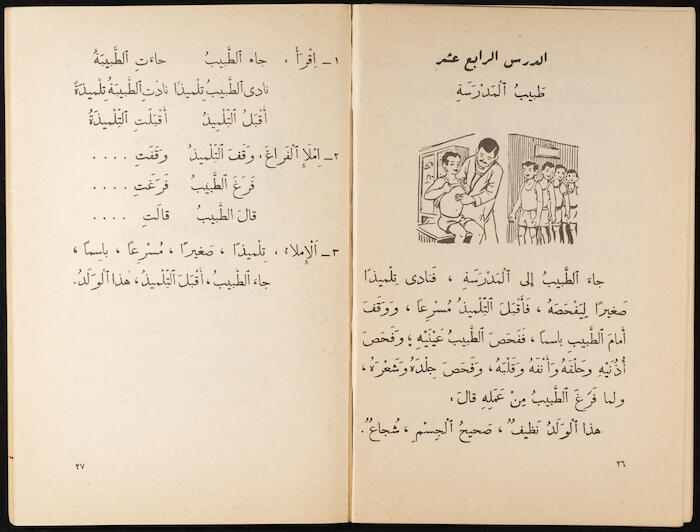 الدرس الرابع عشر
طَبِيبُ ٱلْمَدْرَسَةِ
جاءَ ٱلطَّبيبُ إلى ٱلْمَدْرَسَةِ ، فَنادى تِلْميذا
صَغيرًا لِيَفْحَصَهُ ، فَأَقْبَلَ ٱلتِّلْميذُ مُسْرِعًا ، وَوَقَفَ
أَمامَ ٱلطَّبيبِ باسِماً ، فَفَحَصَ ٱلطَّبيبُ عَيْنَيْهِ ؛ وَفَحَصَ
أُذُنَيْهِ وَحَلْقَهُ وَأَنْفَهُ وَقَلْبَهُ ، وَفَحَصَ جِلْدَهُ وَشَعْرَهُ ،
ولما فَرَغَ ٱلطَّبيبُ مِنْ عَمَلِهِ قالَ :
هذا ٱلْوَلَدُ نَظيفٌ ، صَحيحُ ٱلْجِسْمِ ، شُجاعٌ .
٢٦
١ – اِقْرَأْ : جاء ٱلطَّبيبُ جاءَتِ ٱلطَّبيبَةُ
نادى ٱلطَّبيبُ تِلْميذًا نادَتِ ٱلطَّبيبَةُ تِلْميذَةً
أَقْبَلَ ٱلتِّلْميذُ أَقْبَلَتِ ٱلتِّلْميذَةُ
٢ – اِمْلَإِ ٱلْفَراغَ : وَقَفَ ٱلتِّلْميذُ وَقَفَتِ ....
فَرَغَ ٱلطَّبيبُ فَرَغَتِ ....
قالَ ٱلطَّبيبُ قالَتِ ....
٣ – اَلْإِملاءُ : تِلْميذًا ، صَغيرًا ، مُسْرِعًا ، باسِماً ،
جاءَ ٱلطَّبيبُ ، أَقْبَلَ ٱلتِّلْميذُ ، هذا ٱلْوَلَدُ .
٢٧